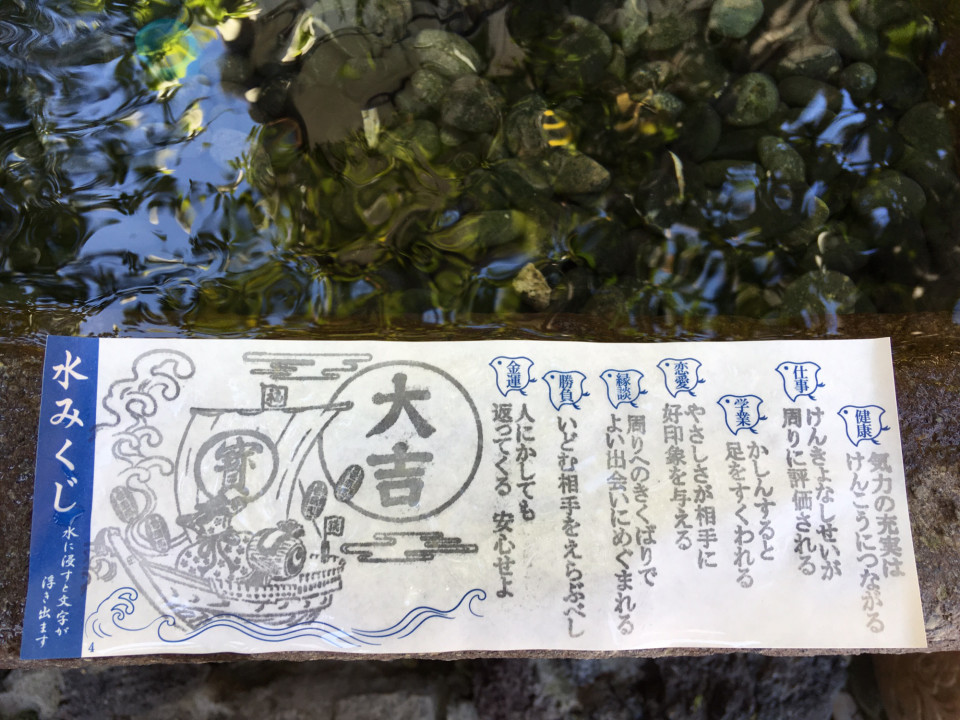 水みくじ
水に浸すと文字が
浮き出ます
4
寳
大吉
健康
気力の充実は
けんこうにつながる
仕事
けんきょなしせいが
周りに評価される
学業
かしんすると
足をすくわれる
恋愛
やさしさが相手に
好印象を与える
縁談
周りへのきくばりで
よい出会いにめぐまれる
勝負
いどむ相手をえらぶべし
金運
人にかしても
返ってくる 安心せよ